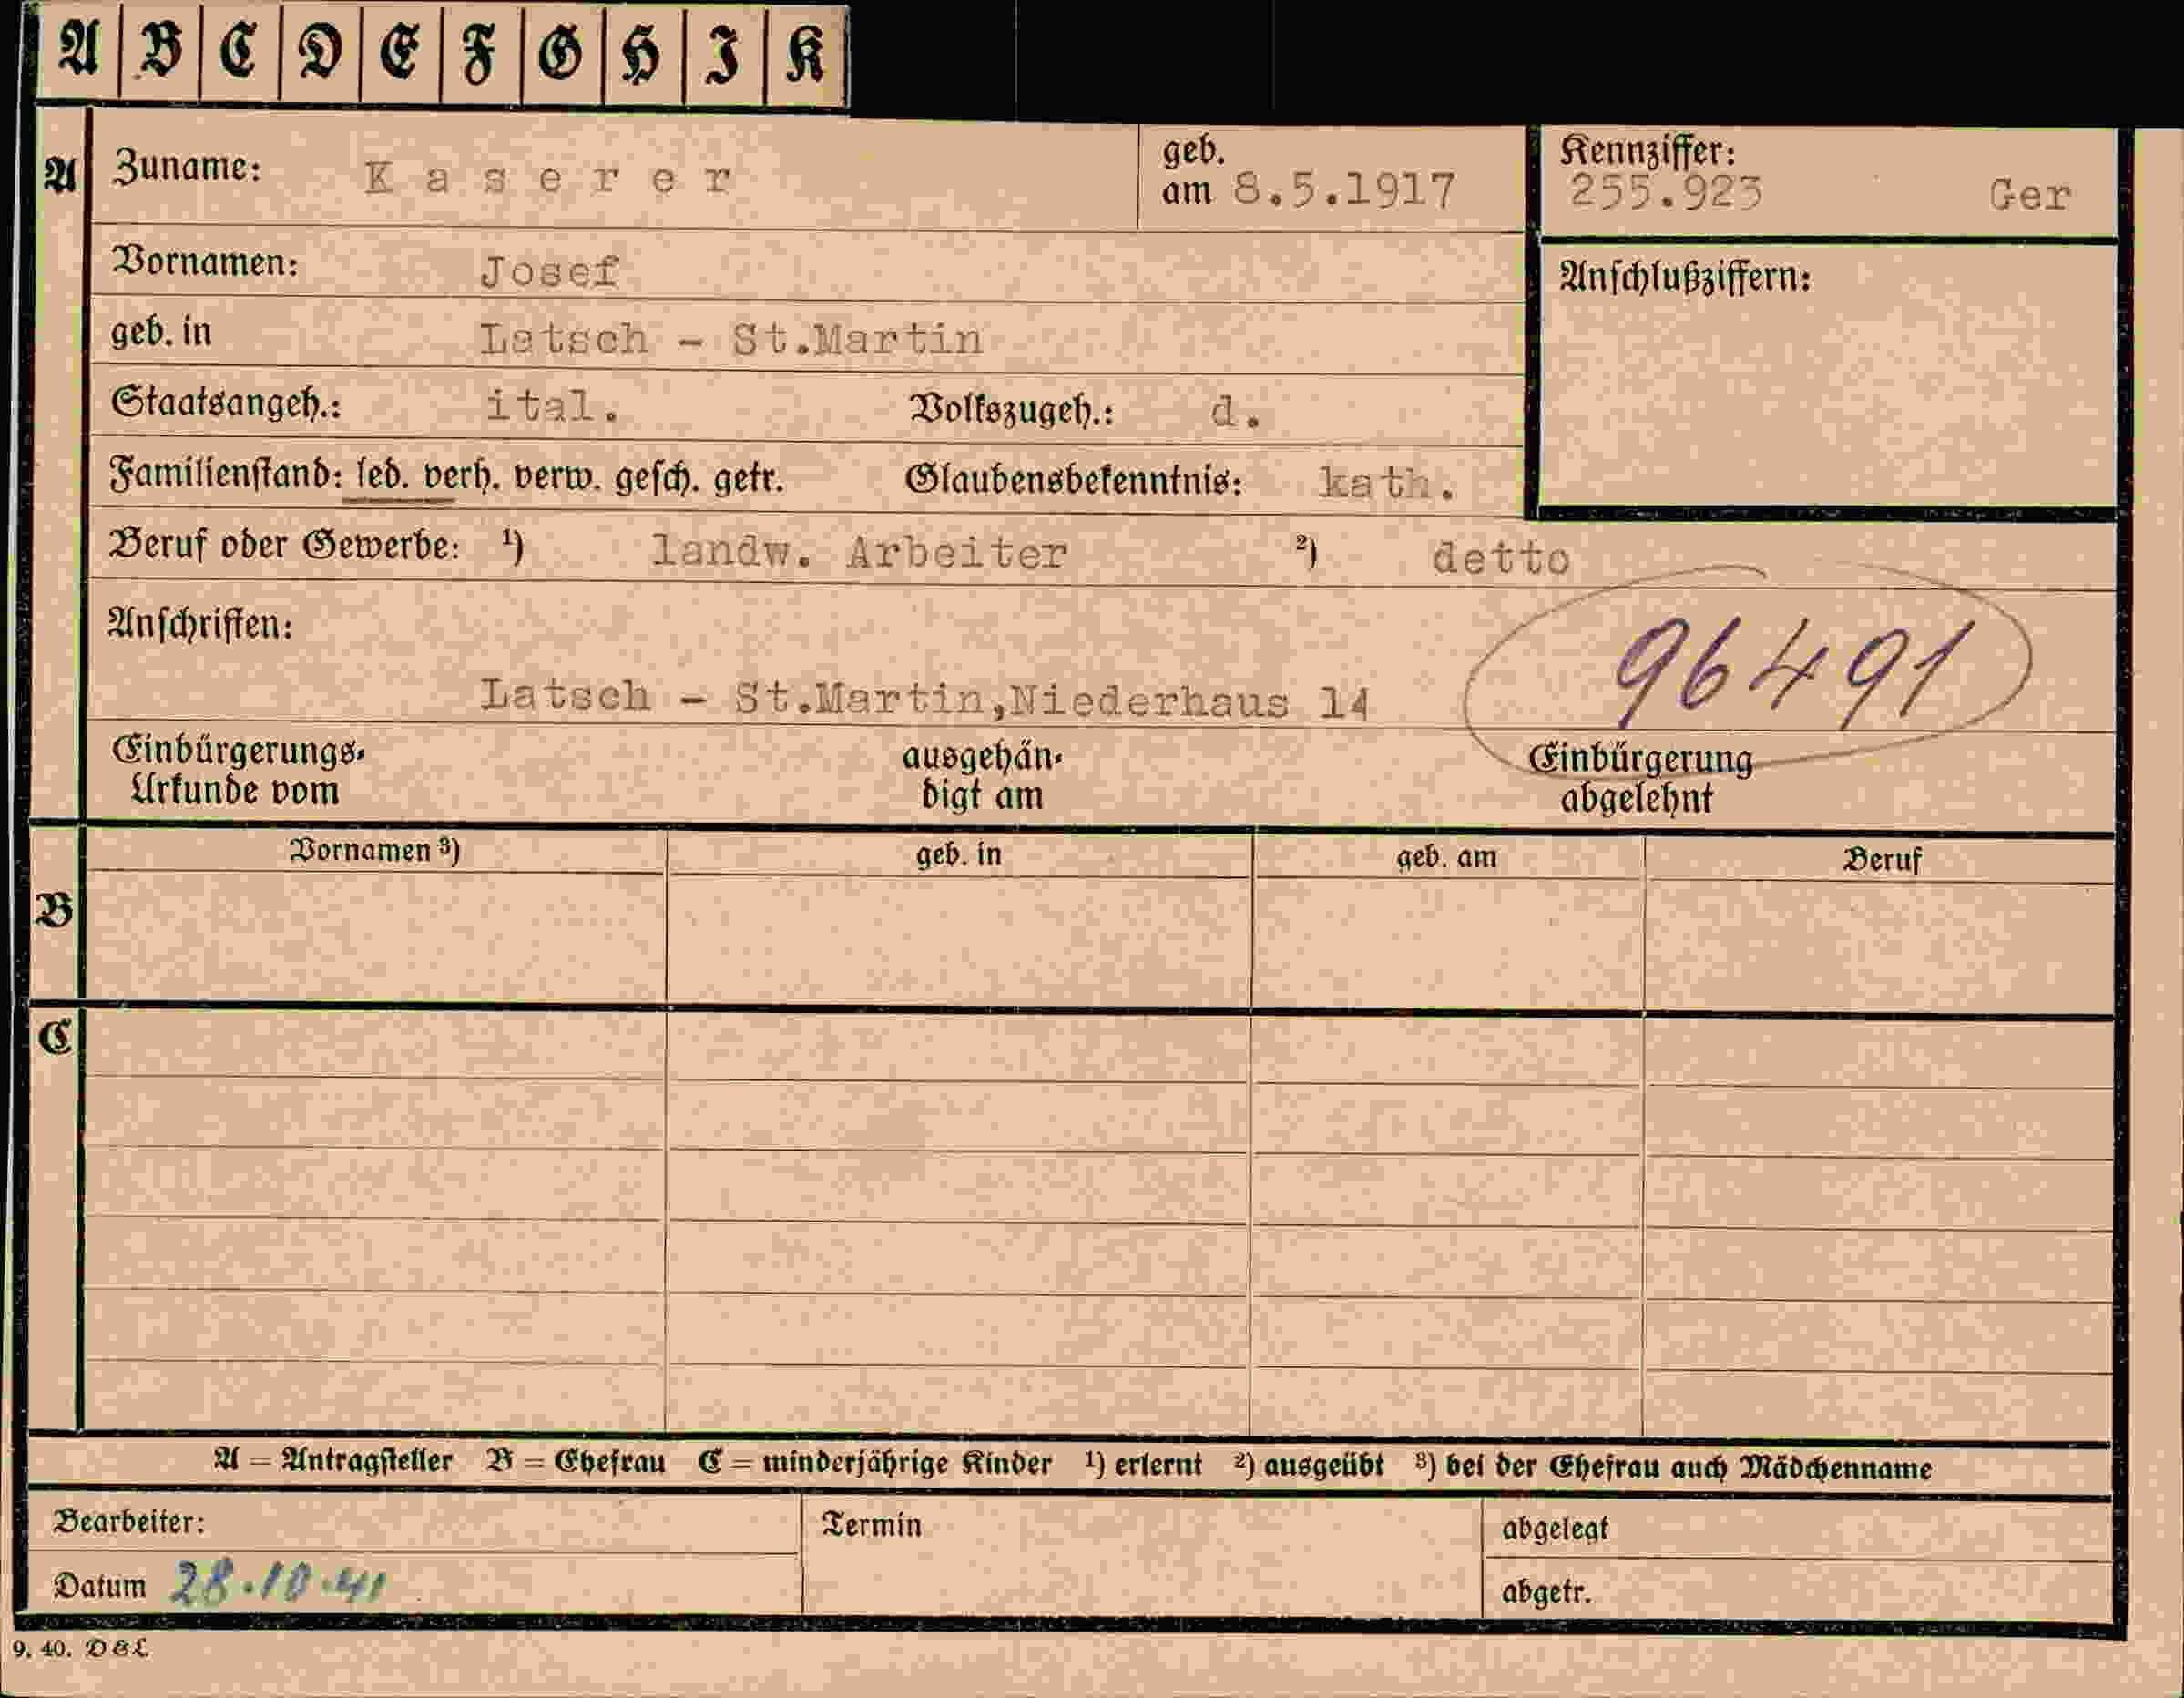 A B C D E F G H I K
A Zuname: Kaserer geb. am 8.5.1917 Kennziffer: 255.923 Ger
Vornamen: Josef Anschlußziffern:
geb. in Latsch - St.Martin
Staatsangeh.: ital. Volkszugeh.: d.
Familienstand: led. verh. verw. gesch. getr. Glaubensbekenntnis: kath.
Beruf oder Gewerbe: ¹) landw. Arbeiter ²) detto
Anschriften:
96491
Latsch - St.Martin,Niederhaus 14
Einbürgerungs- ausgehän- Einbürgerung
Urkunde vom digt am abgelehnt
Vornamen ³) geb. in geb. am Beruf
B
C
A = Antragsteller B = Ehefrau C = minderjährige Kinder ¹) erlernt ²) ausgeübt ³) bei der Ehefrau auch Mädchenname
Bearbeiter: Termin abgelegt
Datum 28.10.41 abgetr.
9. 40. D & L